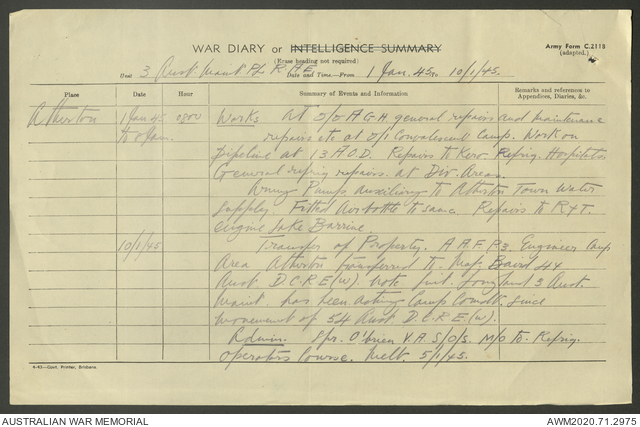 WAR DIARY or INTELLIGENCE SUMMARY
Army Form C.2118
(adapted.)
(Erase heading not required)
Unit 3 Aust. Maint Pl. R A E. Date and Time.—From 1 Jan. 45. 10/1/45.
Place Date Hour Summary of Events and Information Remarks and references to Appendices, Diaries, &c.
Atherton 1 Jan 45 0800 Works. At 2/2 A.G.H general repairs and maintenance
to 8 Jan. repairs etc at 2/1 Convalescent Camp. Work on
pipeline at 13 A O D. Repairs to Kero. Refrig. Hospitals
General refrig repairs. at Div. Areas.
Pumps auxiliary to Atherton Town Water
supply. Fitted Air bottle to same. Repairs to R & T.
engine Lake Barrine.
10/1/45 Transfer of Property. A.A.F.P3. Engineer Camp
Area Atherton transferred to Maj. Baird 44
Aust D.C.R.E (W). Note Lieut. 3 Aust.
Maint. has been acting Camp Comdt. since
movement of 54 Aust. D.C.R.E (W).
Admin. Spr. O'brien V.A S/O/S. M/O to. Refrig.
operators Course. Melb. 5/1/45.
4-43—Govt. Printer, Brisbane.
AUSTRALIAN WAR MEMORIAL
AWM2020.71.2975